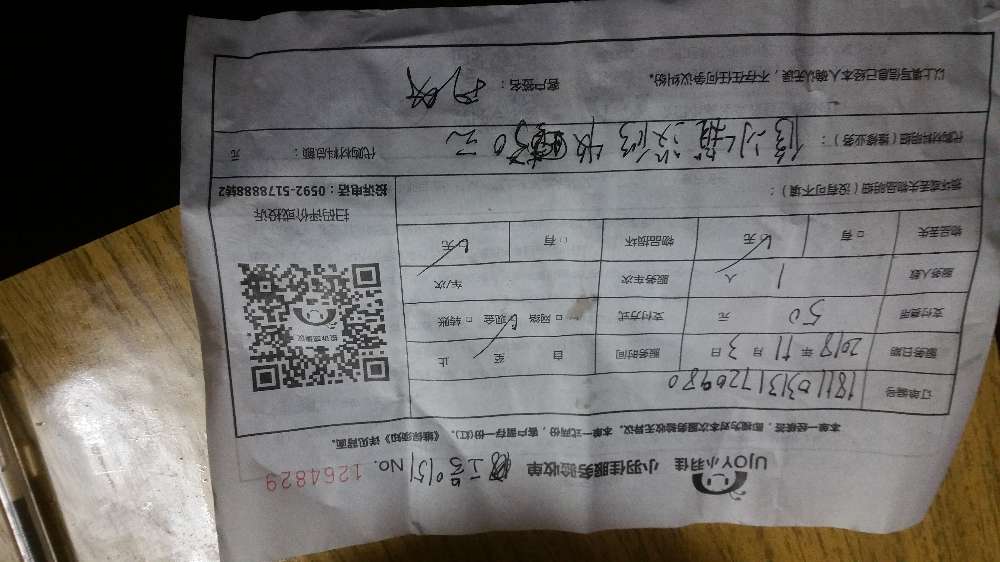 UJOY小羽佳 小羽佳服务验收单 No. 1264829
本单一经核签，即视为对本次服务验收无异议。本单一式两份，客户留存一份(红)。《维保须知》详见背面。
订单编号 181103131720980
服务日期 2018 年 11 月 3 日 服务时间 自 至 止
支付费用 50 元 支付方式 □ 网络 □ 现金 □ 转账
服务人数 1 人 服务车次 车/次
物品丢失 □ 有 □ 无 物品损坏 □ 有 □ 无
损坏或丢失物品明细（没有可不填）：
投诉建议
扫码评价或投诉
投诉电话：0592-5178888转2
代购材料明细（维修业务）： 修水箱 收 30元 代购材料总额： 元
以上填写信息已经本人确认无误，不存在任何争议纠纷。 客户签名：